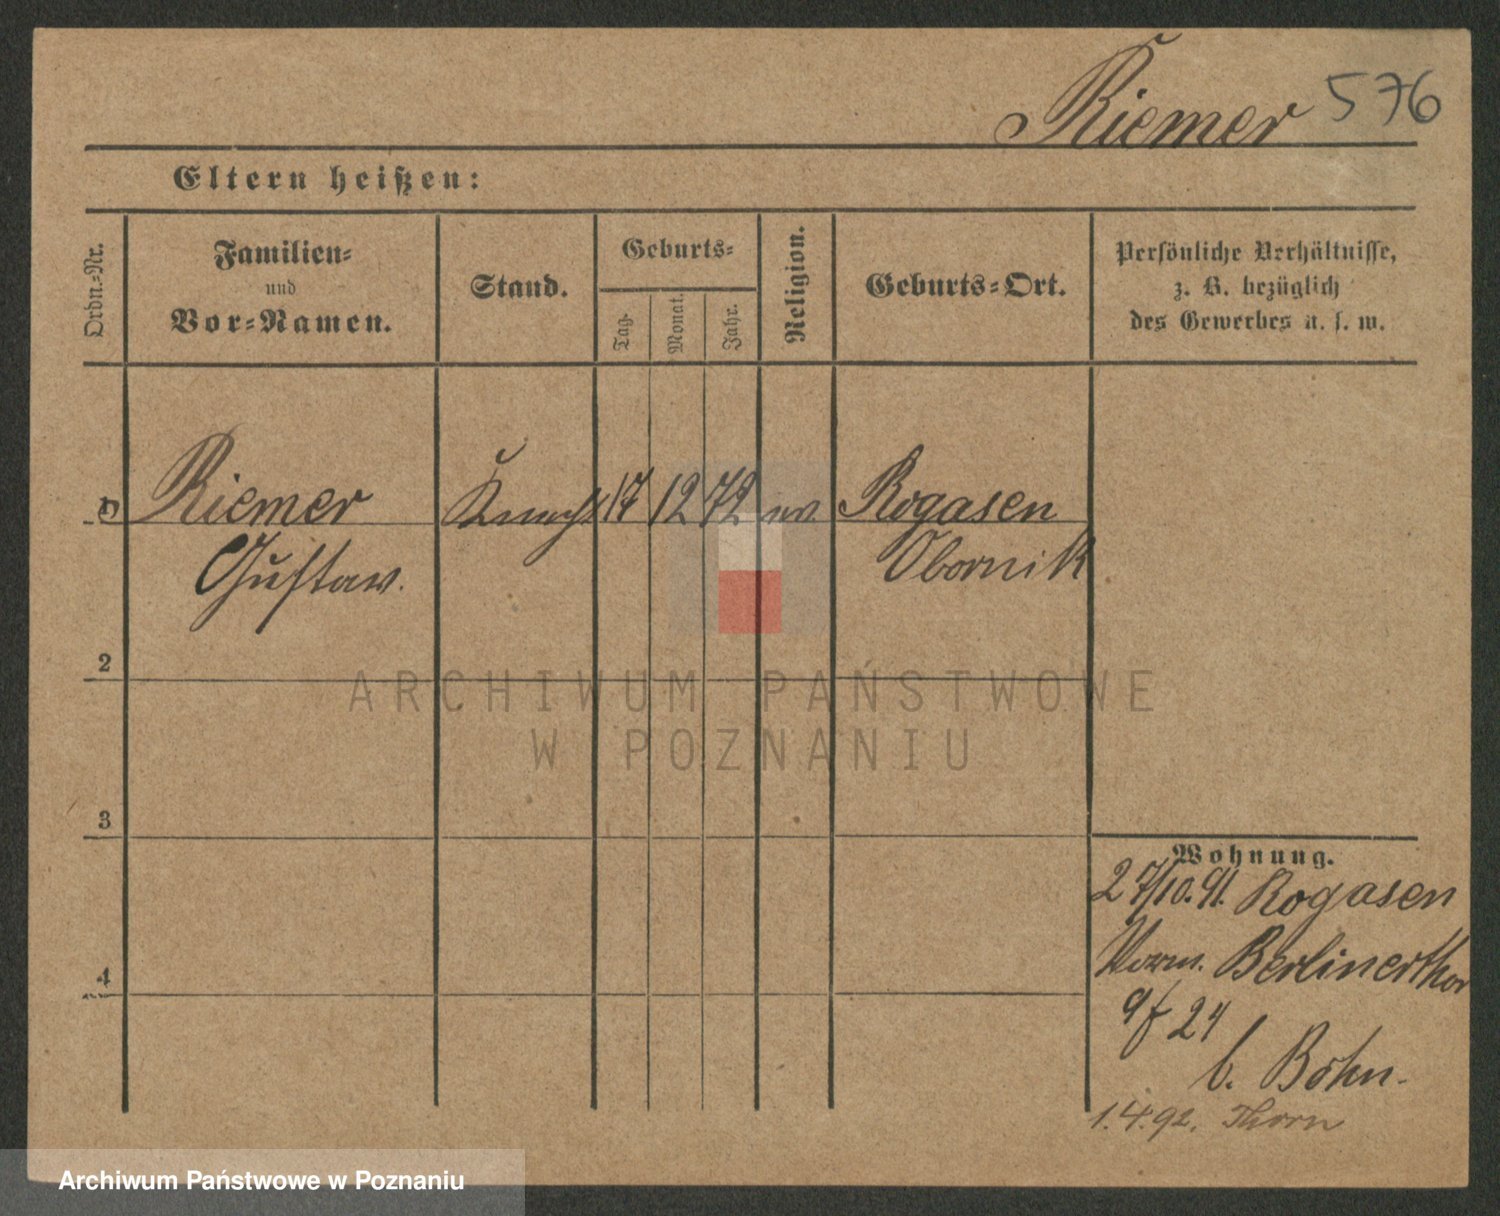 Riemer 576
Eltern heißen:
Ordn.-Nr.
Familien-
und
Vor-Namen.
Stand.
Geburts-
Tag.
Monat.
Jahr.
Religion.
Geburts-Ort.
Persönliche Verhältnisse,
z. B. bezüglich
des Gewerbes u. s. w.
Riemer Knecht 17 12 72 ev. Rogasen
Gustav. Obornik
2
3
4
Wohnung.
27/10.91. Rogasen
Vorm. Berlinerthor
24
b. Böhn.
1.4.92. Thorn
ARCHIWUM PAŃSTWOWE
W POZNANIU
Archiwum Państwowe w Poznaniu